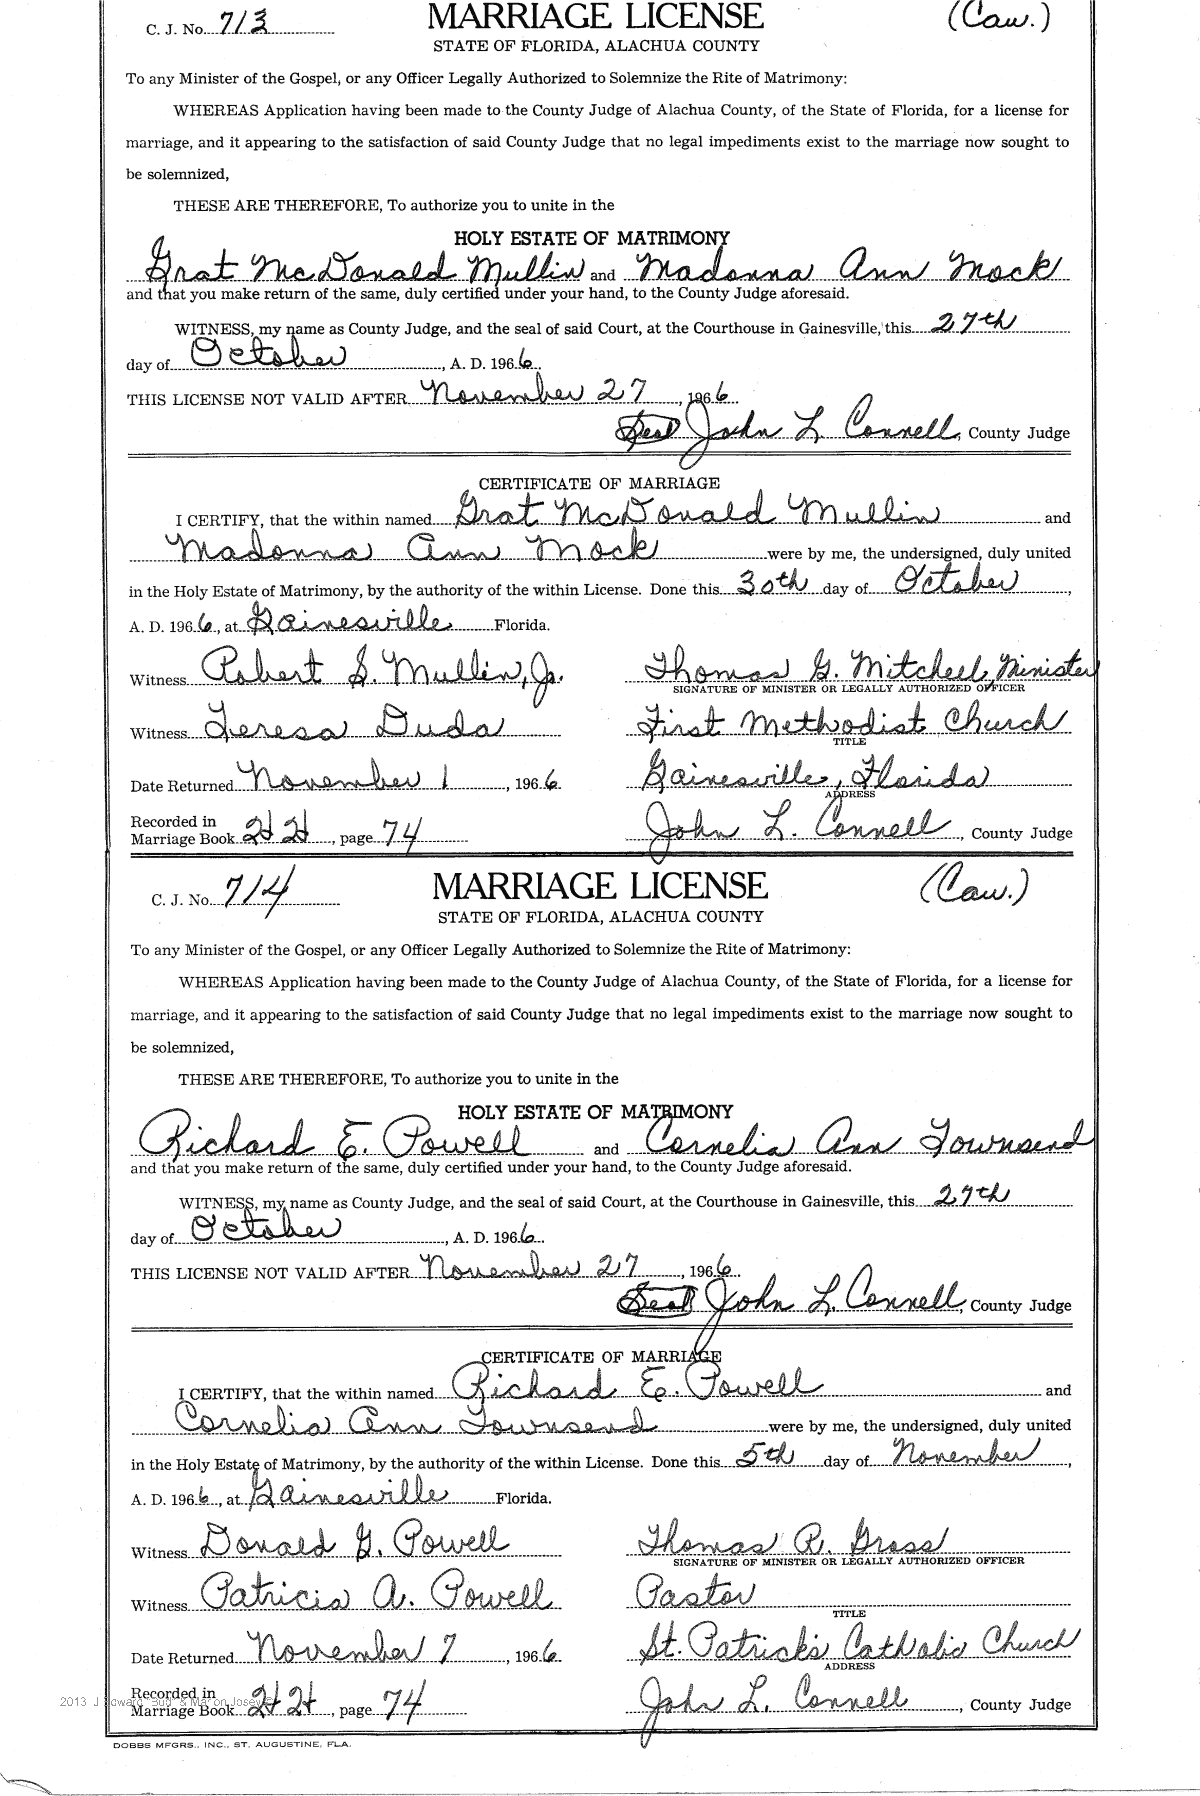 C. J. No. 713 MARRIAGE LICENSE (Caw.)
STATE OF FLORIDA, ALACHUA COUNTY
To any Minister of the Gospel, or any Officer Legally Authorized to Solemnize the Rite of Matrimony:
WHEREAS Application having been made to the County Judge of Alachua County, of the State of Florida, for a license for
marriage, and it appearing to the satisfaction of said County Judge that no legal impediments exist to the marriage now sought to
be solemnized,
THESE ARE THEREFORE, To authorize you to unite in the
HOLY ESTATE OF MATRIMONY
Grat McDonald Mullin and Madonna Ann Mock
and that you make return of the same, duly certified under your hand, to the County Judge aforesaid.
WITNESS, my name as County Judge, and the seal of said Court, at the Courthouse in Gainesville, this 27th
day of October, A. D. 1966.
THIS LICENSE NOT VALID AFTER November 27, 1966.
Seal John L. Connell, County Judge
CERTIFICATE OF MARRIAGE
I CERTIFY, that the within named Grat McDonald Mullin and
Madonna Ann Mock were by me, the undersigned, duly united
in the Holy Estate of Matrimony, by the authority of the within License. Done this 30th day of October,
A. D. 1966, at Gainesville Florida.
Witness Robert S. Mullin, Jr. Thomas G. Mitchell, Minister
SIGNATURE OF MINISTER OR LEGALLY AUTHORIZED OFFICER
Witness Teresa Duda First Methodist Church
TITLE
Date Returned November 1, 1966. Gainesville, Florida
ADDRESS
Recorded in
Marriage Book 22, page 74 John L. Connell, County Judge
C. J. No. 714 MARRIAGE LICENSE (Caw.)
STATE OF FLORIDA, ALACHUA COUNTY
To any Minister of the Gospel, or any Officer Legally Authorized to Solemnize the Rite of Matrimony:
WHEREAS Application having been made to the County Judge of Alachua County, of the State of Florida, for a license for
marriage, and it appearing to the satisfaction of said County Judge that no legal impediments exist to the marriage now sought to
be solemnized,
THESE ARE THEREFORE, To authorize you to unite in the
HOLY ESTATE OF MATRIMONY
Richard E. Powell and Cornelia Ann Townsend
and that you make return of the same, duly certified under your hand, to the County Judge aforesaid.
WITNESS, my name as County Judge, and the seal of said Court, at the Courthouse in Gainesville, this 27th
day of October, A. D. 1966.
THIS LICENSE NOT VALID AFTER November 27, 1966.
Seal John L. Connell, County Judge
CERTIFICATE OF MARRIAGE
I CERTIFY, that the within named Richard E. Powell and
Cornelia Ann Townsend were by me, the undersigned, duly united
in the Holy Estate of Matrimony, by the authority of the within License. Done this 5th day of November,
A. D. 1966, at Gainesville Florida.
Witness Donald G. Powell Thomas R. Gross
SIGNATURE OF MINISTER OR LEGALLY AUTHORIZED OFFICER
Witness Patricia A. Powell Pastor
TITLE
Date Returned November 7, 1966. St. Patrick's Catholic Church
ADDRESS
Recorded in
Marriage Book 22, page 74 John L. Connell, County Judge
DOBBS MFGRS., INC., ST. AUGUSTINE, FLA.
2013 J